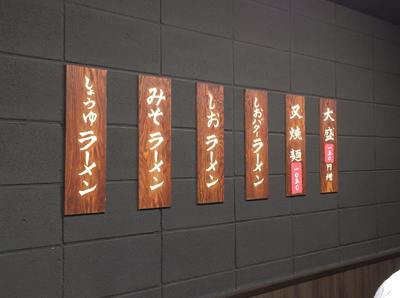 しょうゆラーメン
みそラーメン
しおラーメン
しおバターラーメン
叉焼麺 一〇五〇
大盛 一五〇円増